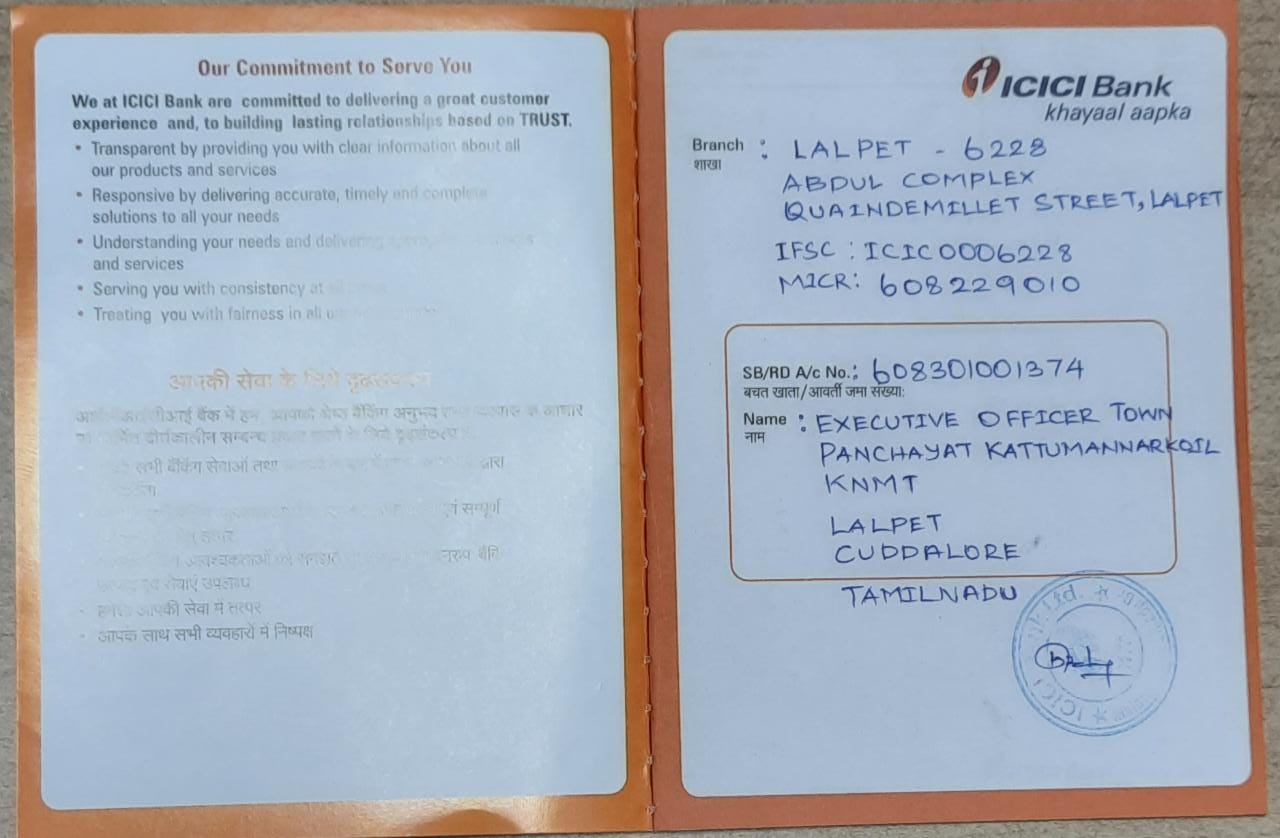 Our Commitment to Serve You
We at ICICI Bank are committed to delivering a great customer
experience and, to building lasting relationships based on TRUST.
• Transparent by providing you with clear information about all
our products and services
• Responsive by delivering accurate, timely and complete
solutions to all your needs
• Understanding your needs and delivering
and services
• Serving you with consistency at
• Treating you with fairness in all
आपकी सेवा के लिये
बैंक में हम बैंकिंग अनुभव के आधार
दीर्घकालीन सम्बन्ध के लिये
सभी बैंकिंग सेवाओं तथा द्वारा
एवं सम्पूर्ण
तत्पर
आवश्यकताओं
सेवाएं उपलब्ध
हमेशा आपकी सेवा में तत्पर
आपके साथ सभी व्यवहारों में निष्पक्ष
ICICI Bank
khayaal aapka
Branch : LALPET - 6228
शाखा
ABDUL COMPLEX
QUAINDEMILLET STREET, LALPET
IFSC : ICIC0006228
MICR: 608229010
SB/RD A/c No.: 608301001374
बचत खाता/आवर्ती जमा संख्या:
Name : EXECUTIVE OFFICER TOWN
नाम
PANCHAYAT KATTUMANNARKOIL
KNMT
LALPET
CUDDALORE
TAMILNADU
ICICI Ltd.